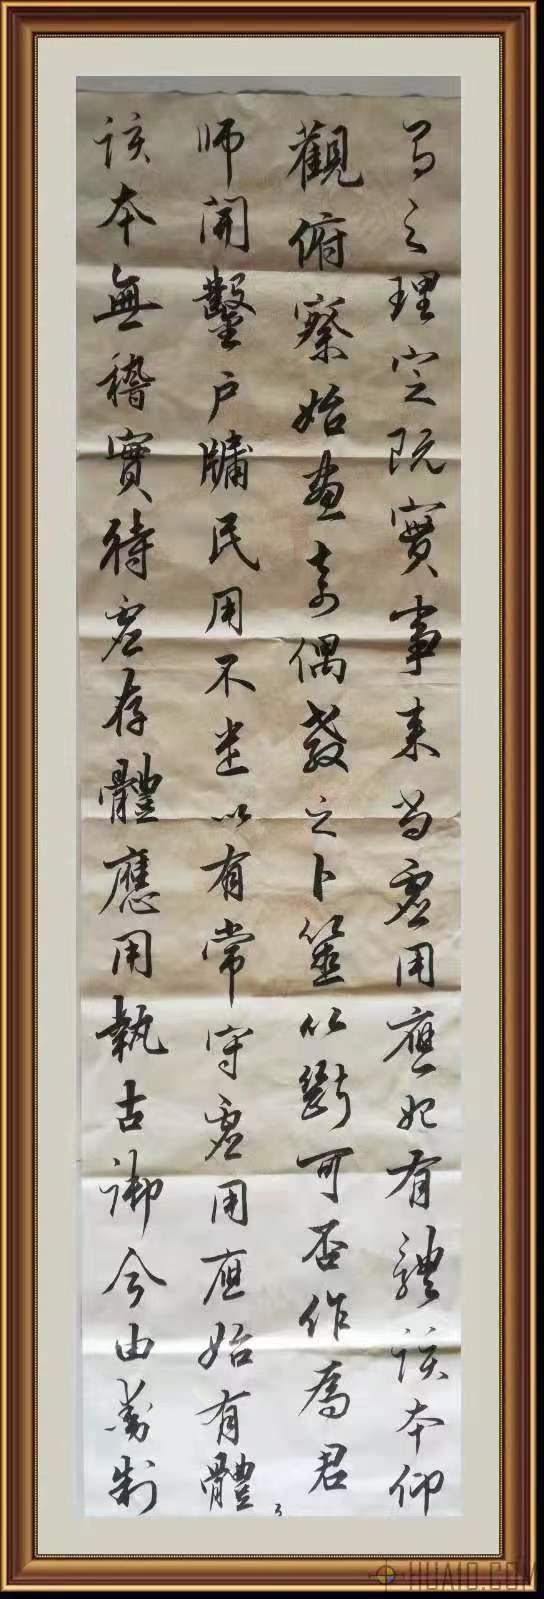 易之理定既實事来尚虛用應始有體該本仰
觀俯察始畫奇偶教之卜筮以斷可否作為君
師開鑿户牖民用不迷以有常守虛用應始有體
該本無稽實待虛存體應用執古御今由著制
HUAIO.COM